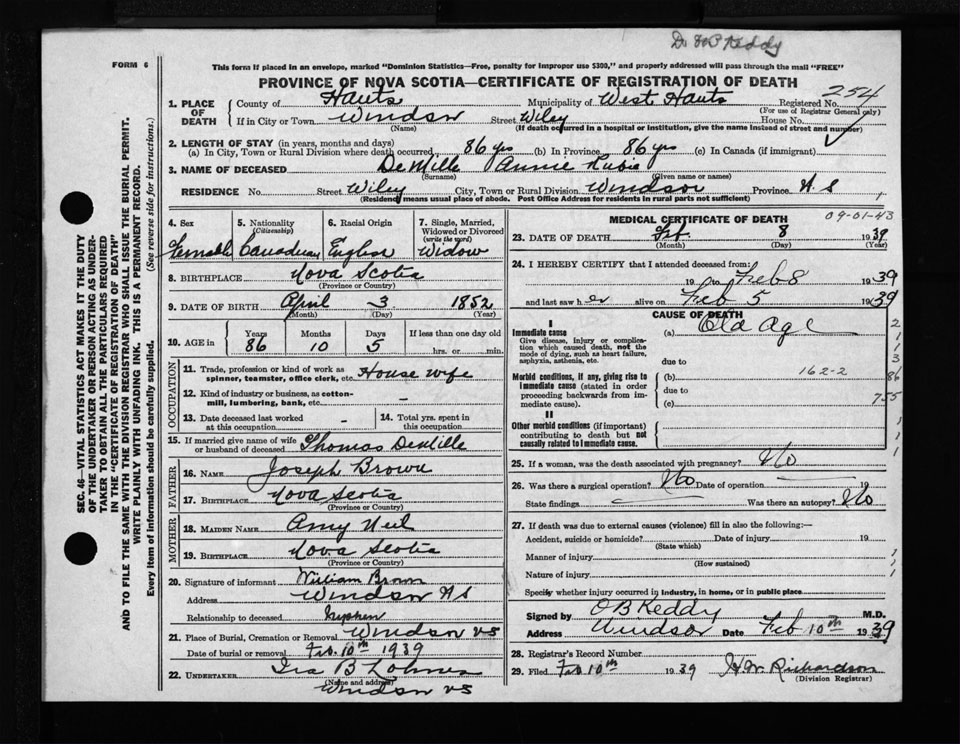 Dr O B Keddy
FORM 6
This form if placed in an envelope, marked "Dominion Statistics—Free, penalty for improper use $300," and properly addressed will pass through the mail "FREE"
PROVINCE OF NOVA SCOTIA—CERTIFICATE OF REGISTRATION OF DEATH
254
1. PLACE OF DEATH County of Hants Municipality of West Hants Registered No.
(For use of Registrar General only)
If in City or Town Windsor Street Wiley House No.
(Name) (If death occurred in a hospital or institution, give the name instead of street and number)
2. LENGTH OF STAY (in years, months and days)
(a) In City, Town or Rural Division where death occurred 86 yrs (b) In Province 86 yrs (c) In Canada (if immigrant)
3. NAME OF DECEASED DeMille Annie
(Surname) (Given name or names)
RESIDENCE No. Street Wiley City, Town or Rural Division Windsor Province N S
(Residence means usual place of abode. Post Office Address for residents in rural parts not sufficient)
4. Sex 5. Nationality (Citizenship) 6. Racial Origin 7. Single, Married, Widowed or Divorced (write the word)
Female Canadian English Widow
8. BIRTHPLACE Nova Scotia
(Province or Country)
9. DATE OF BIRTH April 3 1852
(Month) (Day) (Year)
10. AGE in Years Months Days If less than one day old
86 10 5 hrs. or min.
OCCUPATION
11. Trade, profession or kind of work as spinner, teamster, office clerk, etc. House wife
12. Kind of industry or business, as cotton-mill, lumbering, bank, etc. -
13. Date deceased last worked at this occupation - 14. Total yrs. spent in this occupation
15. If married give name of wife or husband of deceased Thomas DeMille
FATHER
16. NAME Joseph Brown
17. BIRTHPLACE Nova Scotia
(Province or Country)
MOTHER
18. MAIDEN NAME Amy Neil
19. BIRTHPLACE Nova Scotia
(Province or Country)
20. Signature of informant William Brown
Address Windsor N S
Relationship to deceased Nephew
21. Place of Burial, Cremation or Removal Windsor NS
Date of burial or removal Feb. 10th 1939
22. UNDERTAKER Ira B
(Name and address)
Windsor NS
MEDICAL CERTIFICATE OF DEATH 09-01-43
23. DATE OF DEATH Feb. 8 1939
(Month) (Day) (Year)
24. I HEREBY CERTIFY that I attended deceased from:
19 to Feb 8 1939
and last saw her alive on Feb 5 1939
CAUSE OF DEATH
I
Immediate cause (a) Old Age
Give disease, injury or complication which caused death, not the mode of dying, such as heart failure, asphyxia, asthenia, etc.
due to
Morbid conditions, if any, giving rise to immediate cause (stated in order proceeding backwards from immediate cause).
(b) 162-2
due to
(c)
II
Other morbid conditions (if important) contributing to death but not causally related to immediate cause.
2
1
3
86
755
25. If a woman, was the death associated with pregnancy? No
26. Was there a surgical operation? No Date of operation 19
State findings Was there an autopsy? No
27. If death was due to external causes (violence) fill in also the following:—
Accident, suicide or homicide? Date of injury 19
(State which)
Manner of injury
(How sustained)
Nature of injury
Specify whether injury occurred in industry, in home, or in public place
Signed by O B Keddy M.D.
Address Windsor Date Feb 10th 1939
28. Registrar's Record Number
29. Filed Feb 10th 1939 H. W. Richardson
(Division Registrar)
SEC. 46—VITAL STATISTICS ACT MAKES IT THE DUTY
OF THE UNDERTAKER OR PERSON ACTING AS UNDER-
TAKER TO OBTAIN ALL THE PARTICULARS REQUIRED
IN THE "CERTIFICATE OF REGISTRATION OF DEATH"
AND TO FILE THE SAME WITH THE DIVISION REGISTRAR WHO SHALL ISSUE THE BURIAL PERMIT.
WRITE PLAINLY WITH UNFADING INK. THIS IS A PERMANENT RECORD.
Every item of information should be carefully supplied. (See reverse side for instructions.)